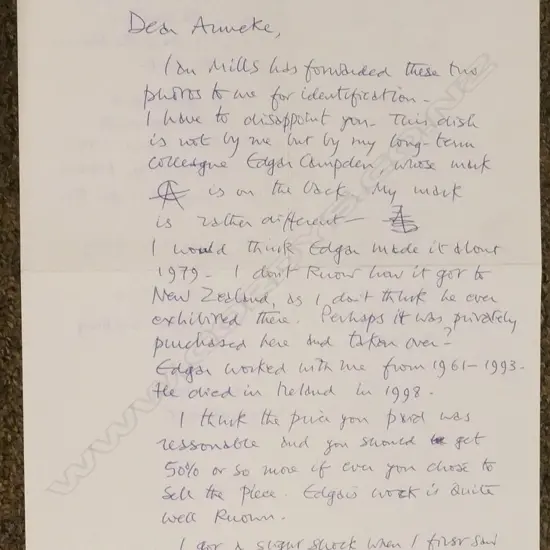 Dear Anneke,
Ian Mills has forwarded these two
photos to me for identification -
I have to disappoint you. This dish
is not by me but by my long-term
colleague Edgar Campden, whose mark
is on the back. My mark
is rather different -
I would think Edgar made it about
1979 - I don't know how it got to
New Zealand, as I don't think he ever
exhibited there. Perhaps it was privately
purchased here and taken over?
Edgar worked with me from 1961-1993.
He died in Ireland in 1998.
I think the price you paid was
reasonable and you should get
50% or so more if ever you chose to
sell the piece. Edgar's work is quite
well known.
I got a sugar shock when I first saw